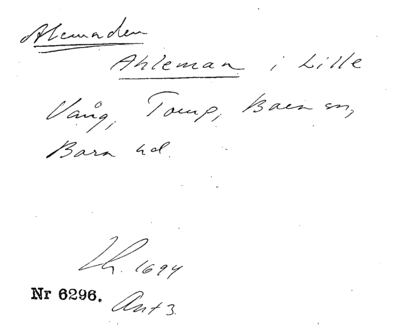 Alemaden
Ahleman i Lille
Vång, Torup, Baen sn,
Bara hd.
Lh. 1694
Nr 6296.
Ant 3.